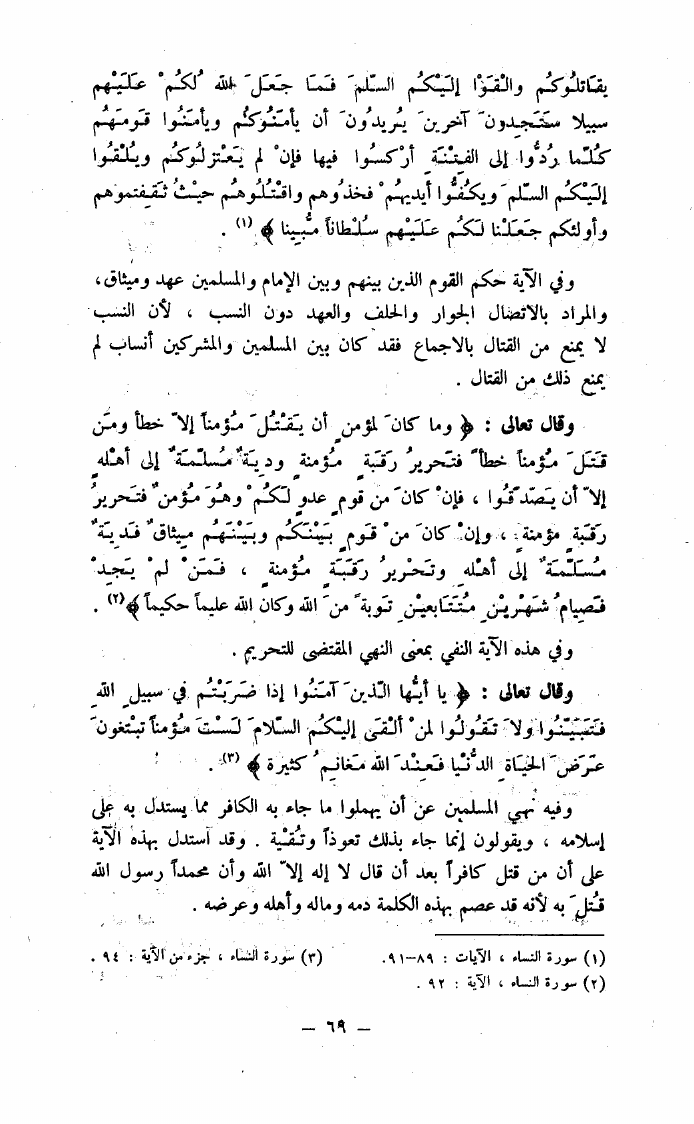 يقاتلوكم والْقَوْا إليْكُم السّلمَ فَمَا جَعَلَ الله ُلكُمْ عليْهم
سبيلا ستَجدونَ آخرينَ يُريدُونَ أن يأمنُوكُم ويأمنُوا قومَهُم
كُلّما رُدُّوا إلى الفِتنَة أرْكسُوا فيها فإنْ لم يَعْتزلُوكم ويُلْقُوا
إليْكُم السّلمَ ويكُفُّوا أيديهُمْ فخذُوهم واقتُلُوهُم حيْثُ ثقِفتموهم
وأولئكم جعَلْنا لكُم علَيْهم سُلْطاناً مُّبينا ﴾ (١) .
وفي الآية حكم القوم الذين بينهم وبين الإمام والمسلمين عهد وميثاق،
والمراد بالاتصال الجوار والحلف والعهد دون النسب ، لأن النسب
لا يمنع من القتال بالاجماع فقد كان بين المسلمين والمشركين أنساب لم
يمنع ذلك من القتال .
وقال تعالى : ﴿ وما كانَ لمؤمنٍ أن يَقْتُلَ مُؤمناً إلاّ خطأ ومَن
قتَلَ مُؤمناً خطأً فتَحريرُ رقَبَةٍ مُؤمنةٍ وديَةٌ مُسلّمَةٌ إلى أهْلهِ
إلاّ أن يَصّدّقُوا ، فإنْ كانَ من قومٍ عدوٍ لكُمْ وهُوَ مُؤمنٌ فتَحريرُ
رقبَةٍ مؤمنةٍ ، وإنْ كانَ منْ قومٍ بيْنَكُم وبيْنَهُم ميثاقٌ فَديَةٌ
مُسلّمَةٌ إلى أهْلهِ وتَحْريرُ رقَبَةٍ مُؤمنةٍ ، فمَنْ لمْ يَجدْ
فَصيامُ شَهْريْنِ مُتَتَابعيْنِ تَوبةً منَ الله وكان الله عليماً حكيماً ﴾ (٢) .
وفي هذه الآية النفي بمعنى النهي المقتضى للتحريم .
وقال تعالى : ﴿ يا أيُّها الّذينَ آمَنُوا إذا ضَرَبْتُم في سبيلِ اللهِ
فتَبَيّنُوا ولاَ تَقُولُوا لمنْ ألْقَى إليْكُم السّلامَ لسْتَ مُؤمناً تبْتغونَ
عرَضَ الحيَاةِ الدُّنْيا فَعِنْدَ الله مَغانمُ كثيرة ﴾ (٣) .
وفيه نهي المسلمين عن أن يهملوا ما جاء به الكافر مما يستدل به على
إسلامه ، ويقولون إنما جاء بذلك تعوذاً وتُقْية . وقد استدل بهذه الآية
على أن من قتل كافراً بعد أن قال لا إله إلاّ الله وأن محمداً رسول الله
قُتلَ به لأنه قد عصم بهذه الكلمة دمه وماله وأهله وعرضه .
(١) سورة النساء ، الآيات : ٨٩–٩١. (٣) سورة النساء ، جزء من الآية : ٩٤ .
(٢) سورة النساء ، الآية : ٩٢ .
— ٦٩ —